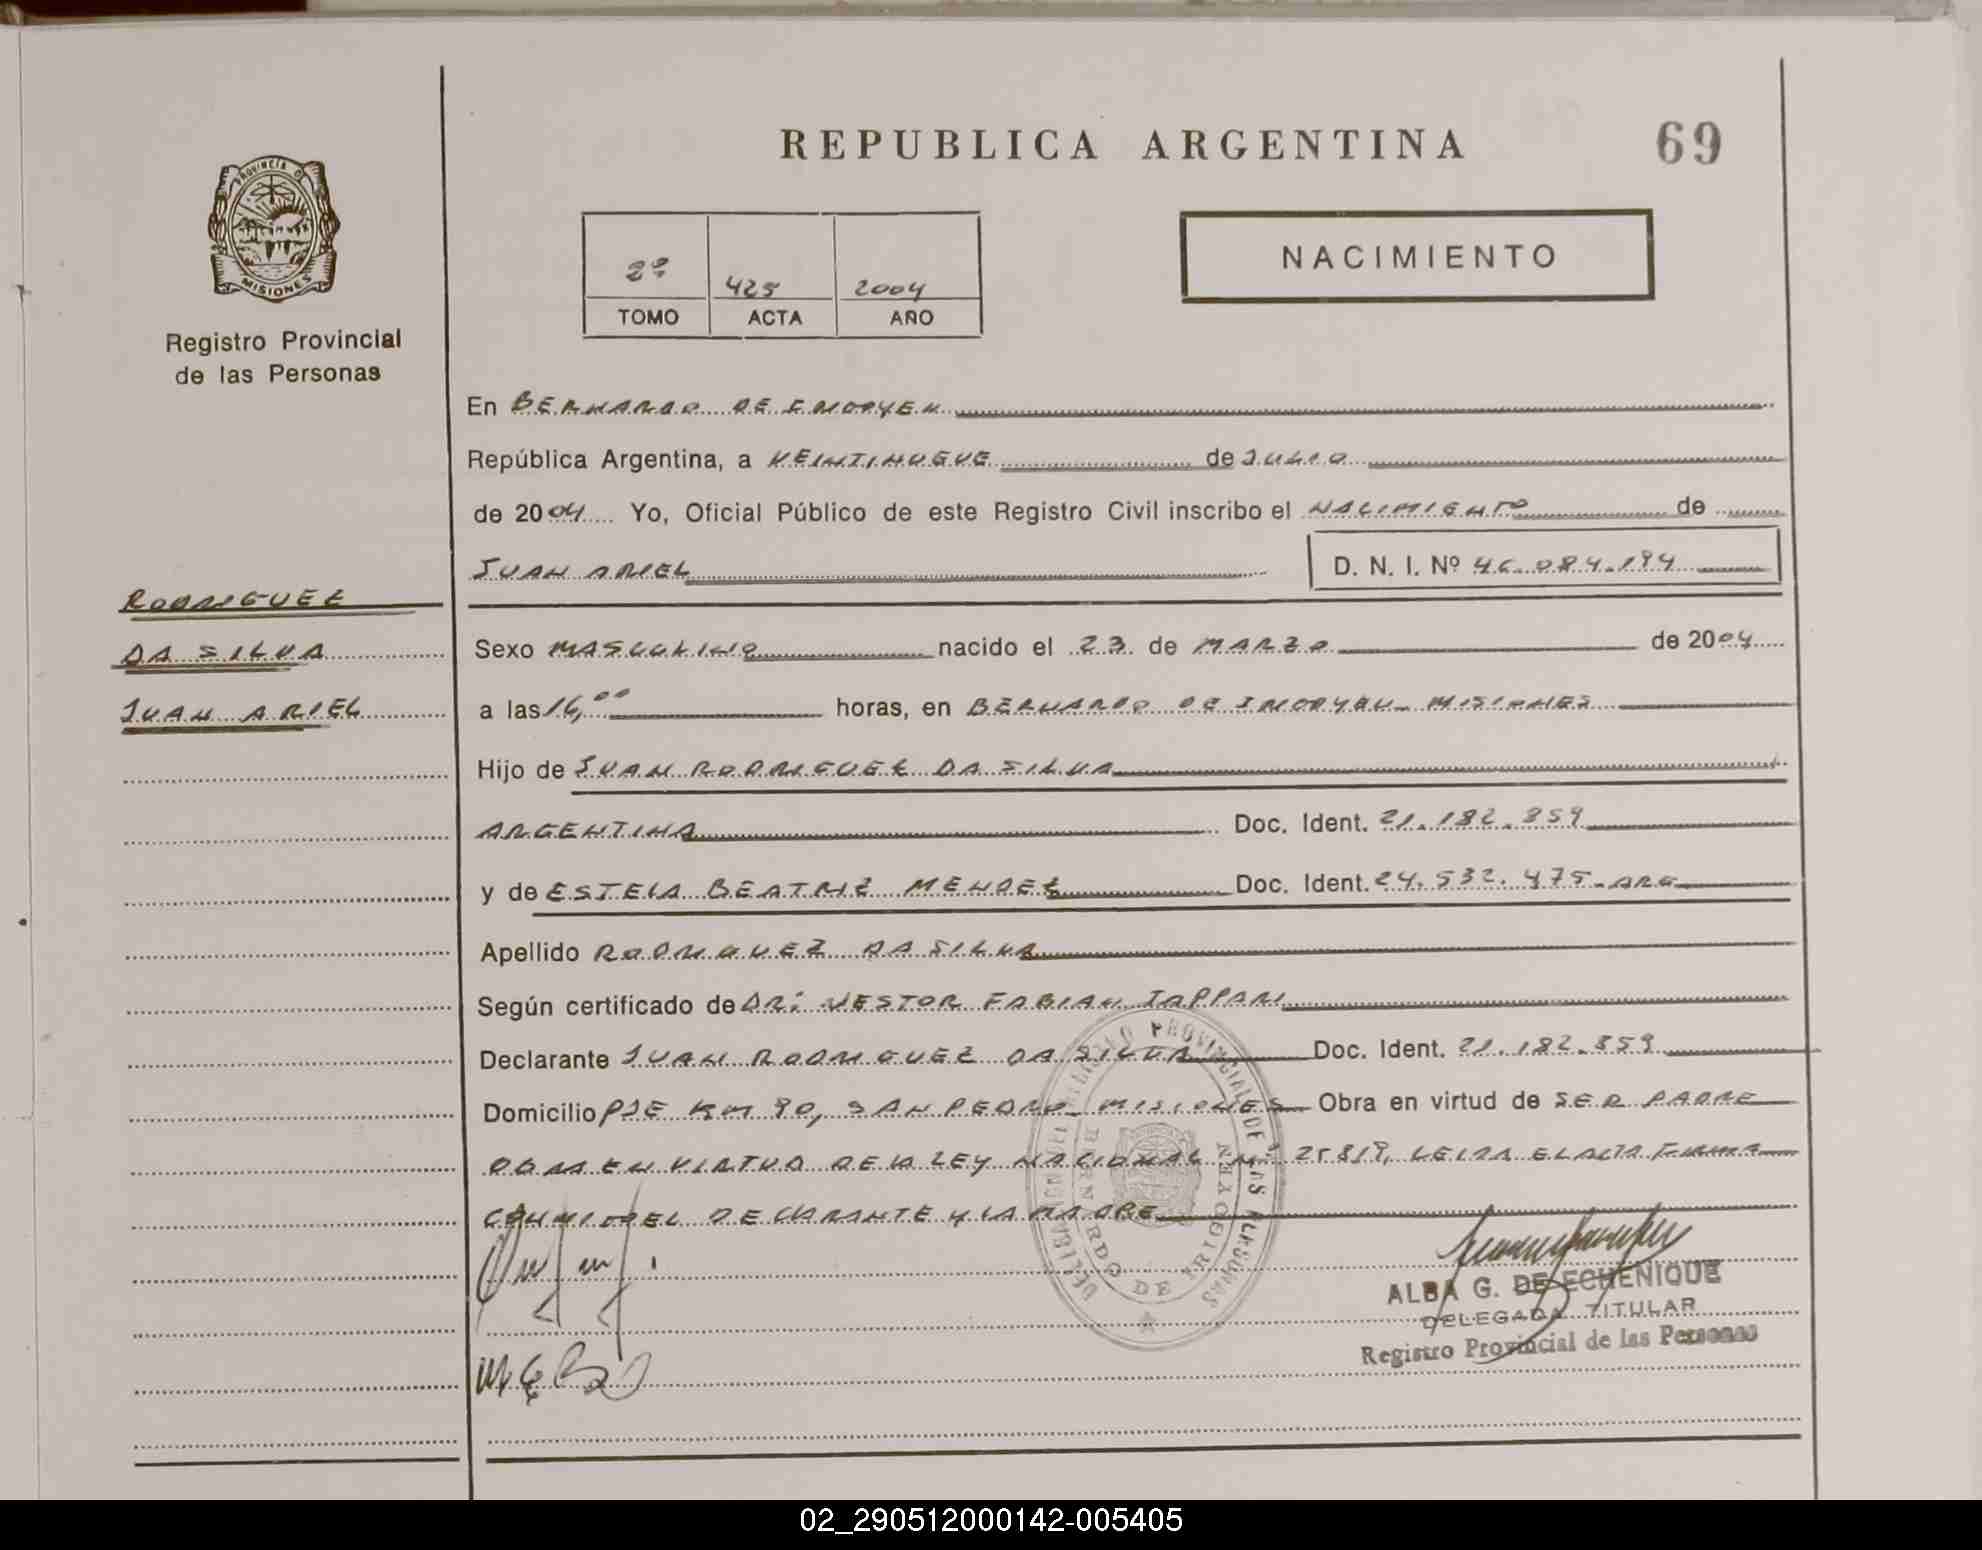 REPUBLICA ARGENTINA
69
PROVINCIA DE
MISIONES
Registro Provincial
de las Personas
2º 425 2004
TOMO ACTA AÑO
NACIMIENTO
En BERNARDO DE IRIGOYEN
República Argentina, a VEINTINUEVE de JULIO
de 2004 Yo, Oficial Público de este Registro Civil inscribo el NACIMIENTO de
JUAN ARIEL D. N. I. Nº 46.084.194
RODRIGUEZ
DA SILVA
JUAN ARIEL
Sexo MASCULINO nacido el 23 de MARZO de 2004
a las 16,00 horas, en BERNARDO DE IRIGOYEN - MISIONES
Hijo de JUAN RODRIGUEZ DA SILVA
ARGENTINA Doc. Ident. 21.182.859
y de ESTELA BEATRIZ MENDEZ Doc. Ident. 24.532.475 - ARG
Apellido RODRIGUEZ DA SILVA
Según certificado de DR: NESTOR FABIAN
Declarante JUAN RODRIGUEZ DA SILVA Doc. Ident. 21.182.859
Domicilio PJE KM 90, SAN PEDRO - MISIONES Obra en virtud de SER PADRE
OBRA EN VIRTUD DE LA LEY NACIONAL Nº 25819, LEIDA EL ACTA FIRMA
CONMIGO EL DECLARANTE Y LA MADRE
DELEGACION DEL REGISTRO PROVINCIAL DE LAS PERSONAS
BERNARDO DE IRIGOYEN
ALBA G. DE ECHENIQUE
DELEGADA TITULAR
Registro Provincial de las Personas
02_290512000142-005405